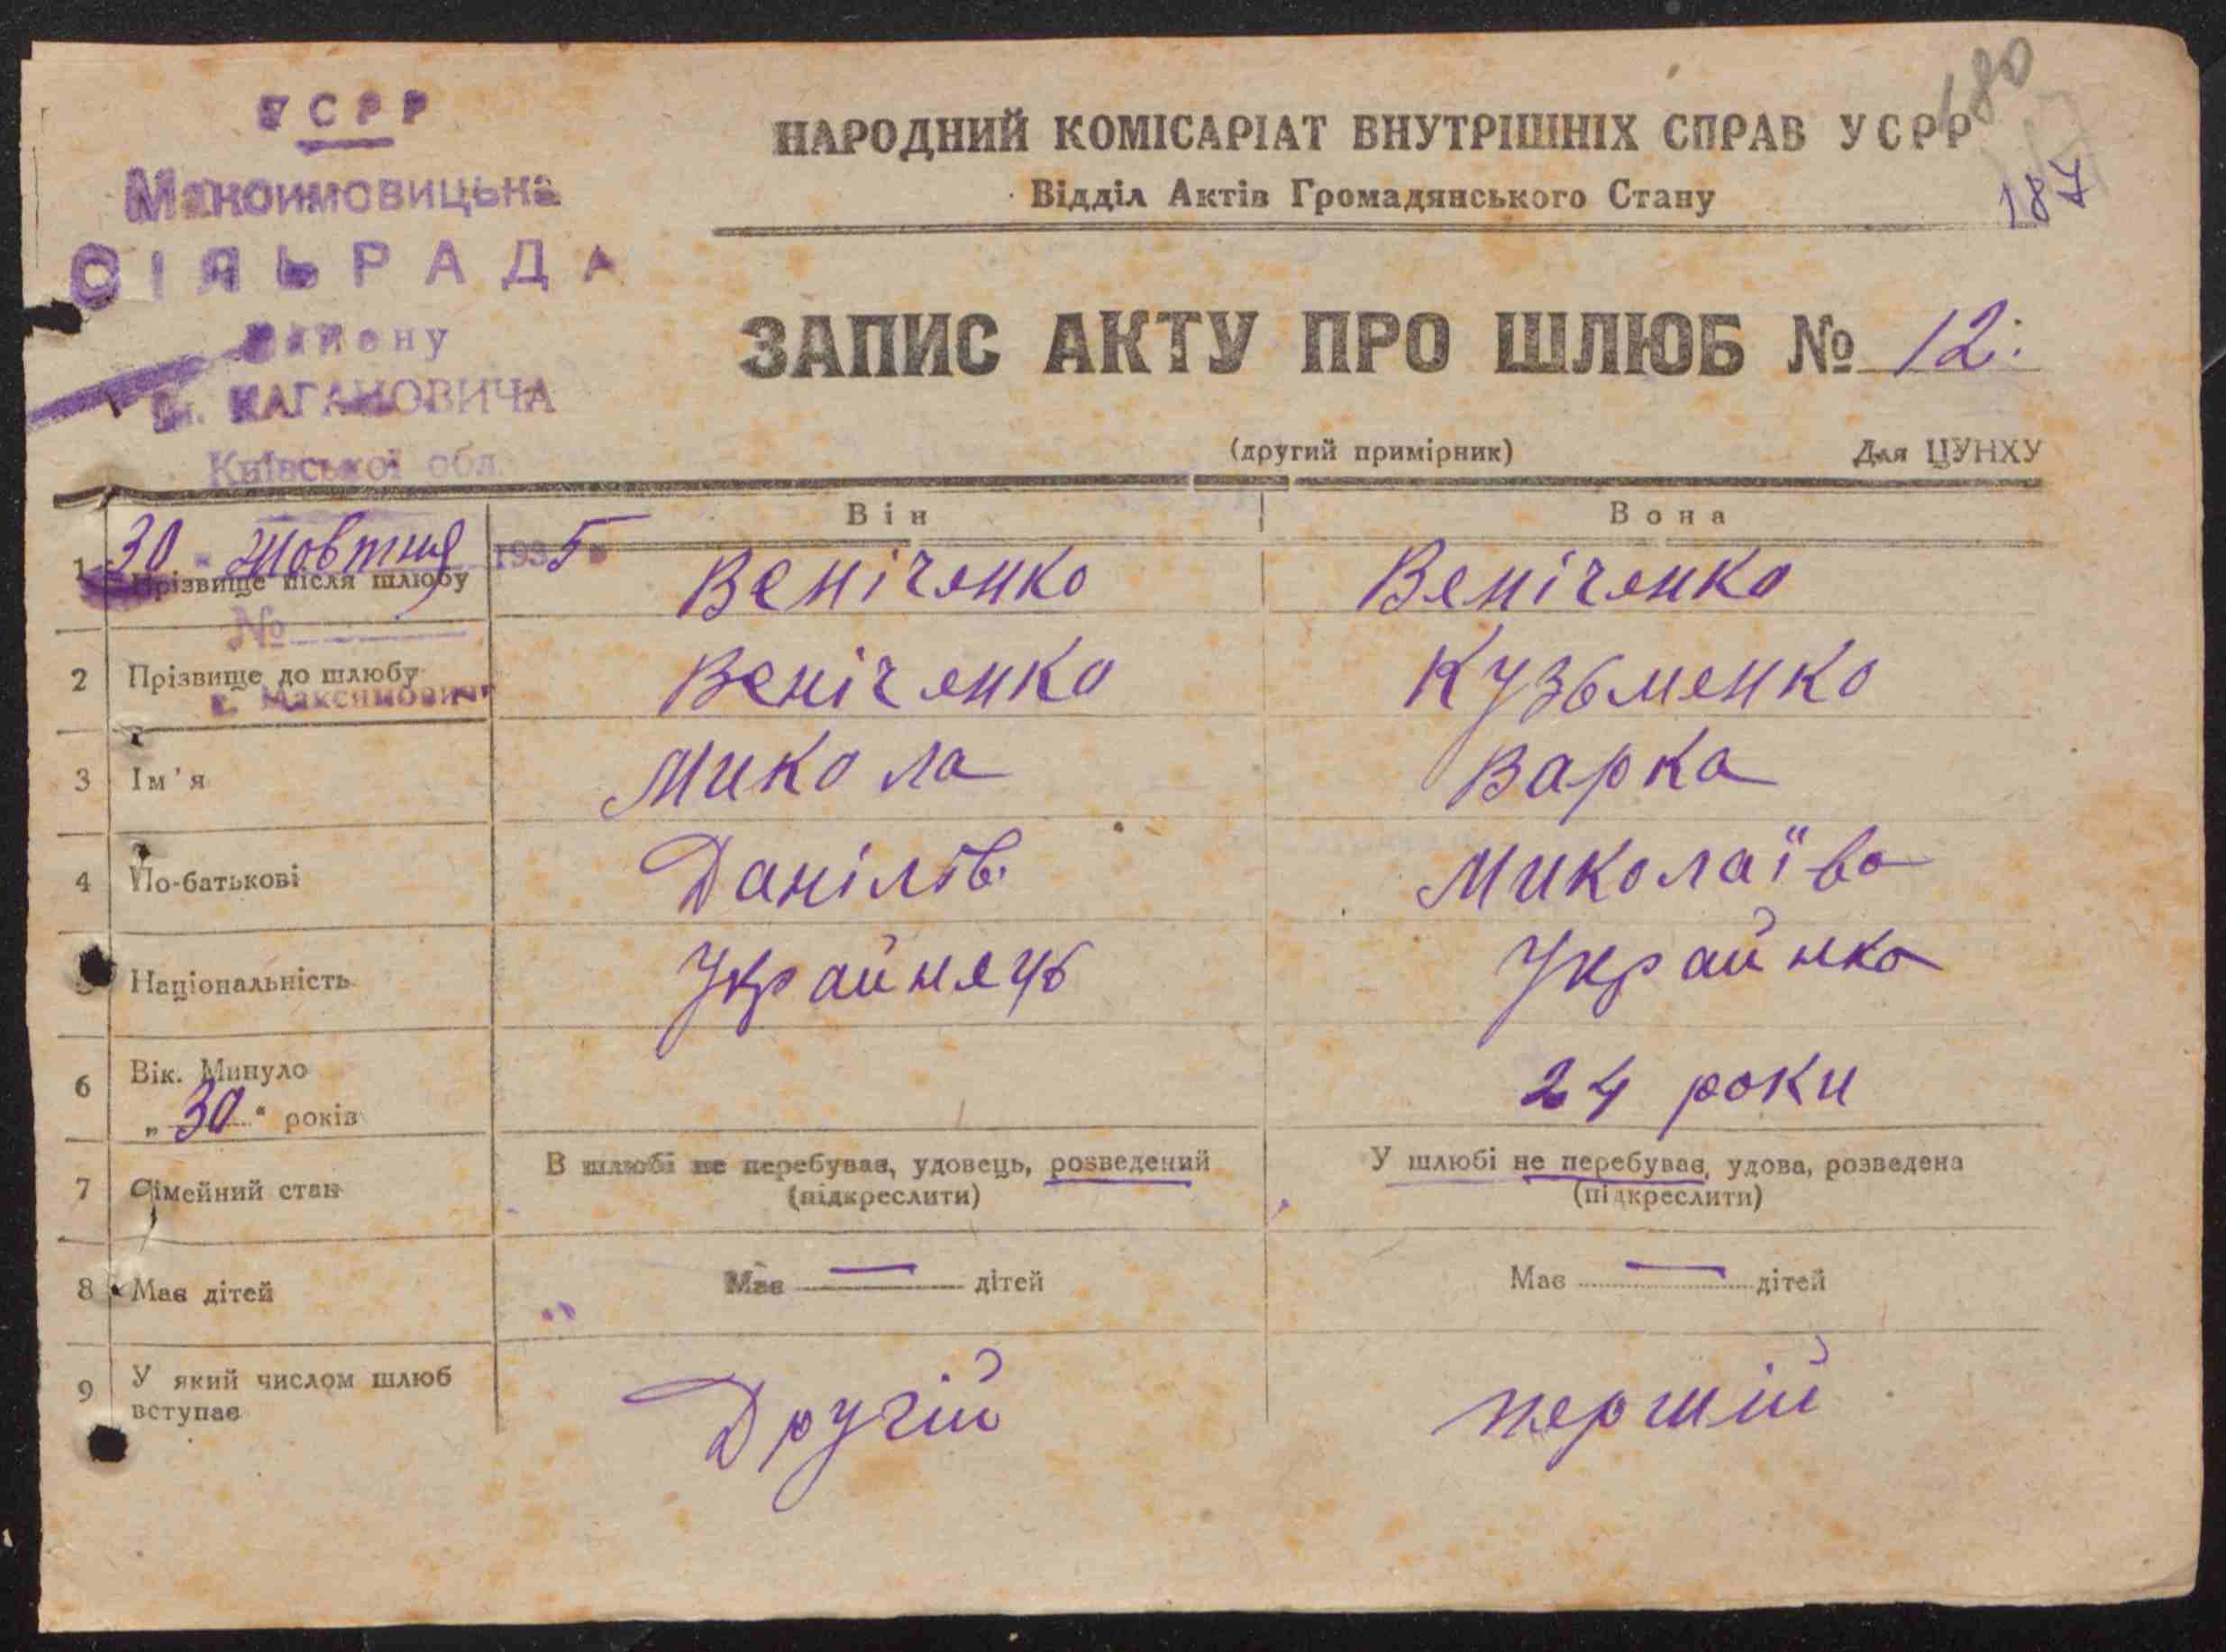 УСРР
Максимовицька
СІЛЬРАДА
Району
ім. КАГАНОВИЧА
Київської обл.
680
187
НАРОДНИЙ КОМІСАРІАТ ВНУТРІШНІХ СПРАВ УСРР
Відділ Актів Громадянського Стану
ЗАПИС АКТУ ПРО ШЛЮБ № 12.
(другий примірник) Для ЦУНХУ
Він Вона
30 Жовтня 1935
1 Прізвище після шлюбу Веніченко Веніченко
№
2 Прізвище до шлюбу Веніченко Кузьменко
с. Максимовичі
3 Ім'я Микола Варка
4 По-батькові Данілов. Миколаїва
5 Національність Украйнець Украйнка
6 Вік. Минуло
„30“ років 24 роки
7 Сімейний стан В шлюбі не перебував, удовець, розведений У шлюбі не перебував, удова, розведена
(підкреслити) (підкреслити)
8 Має дітей Має — дітей Має — дітей
9 У який числом шлюб
вступає Другій першій